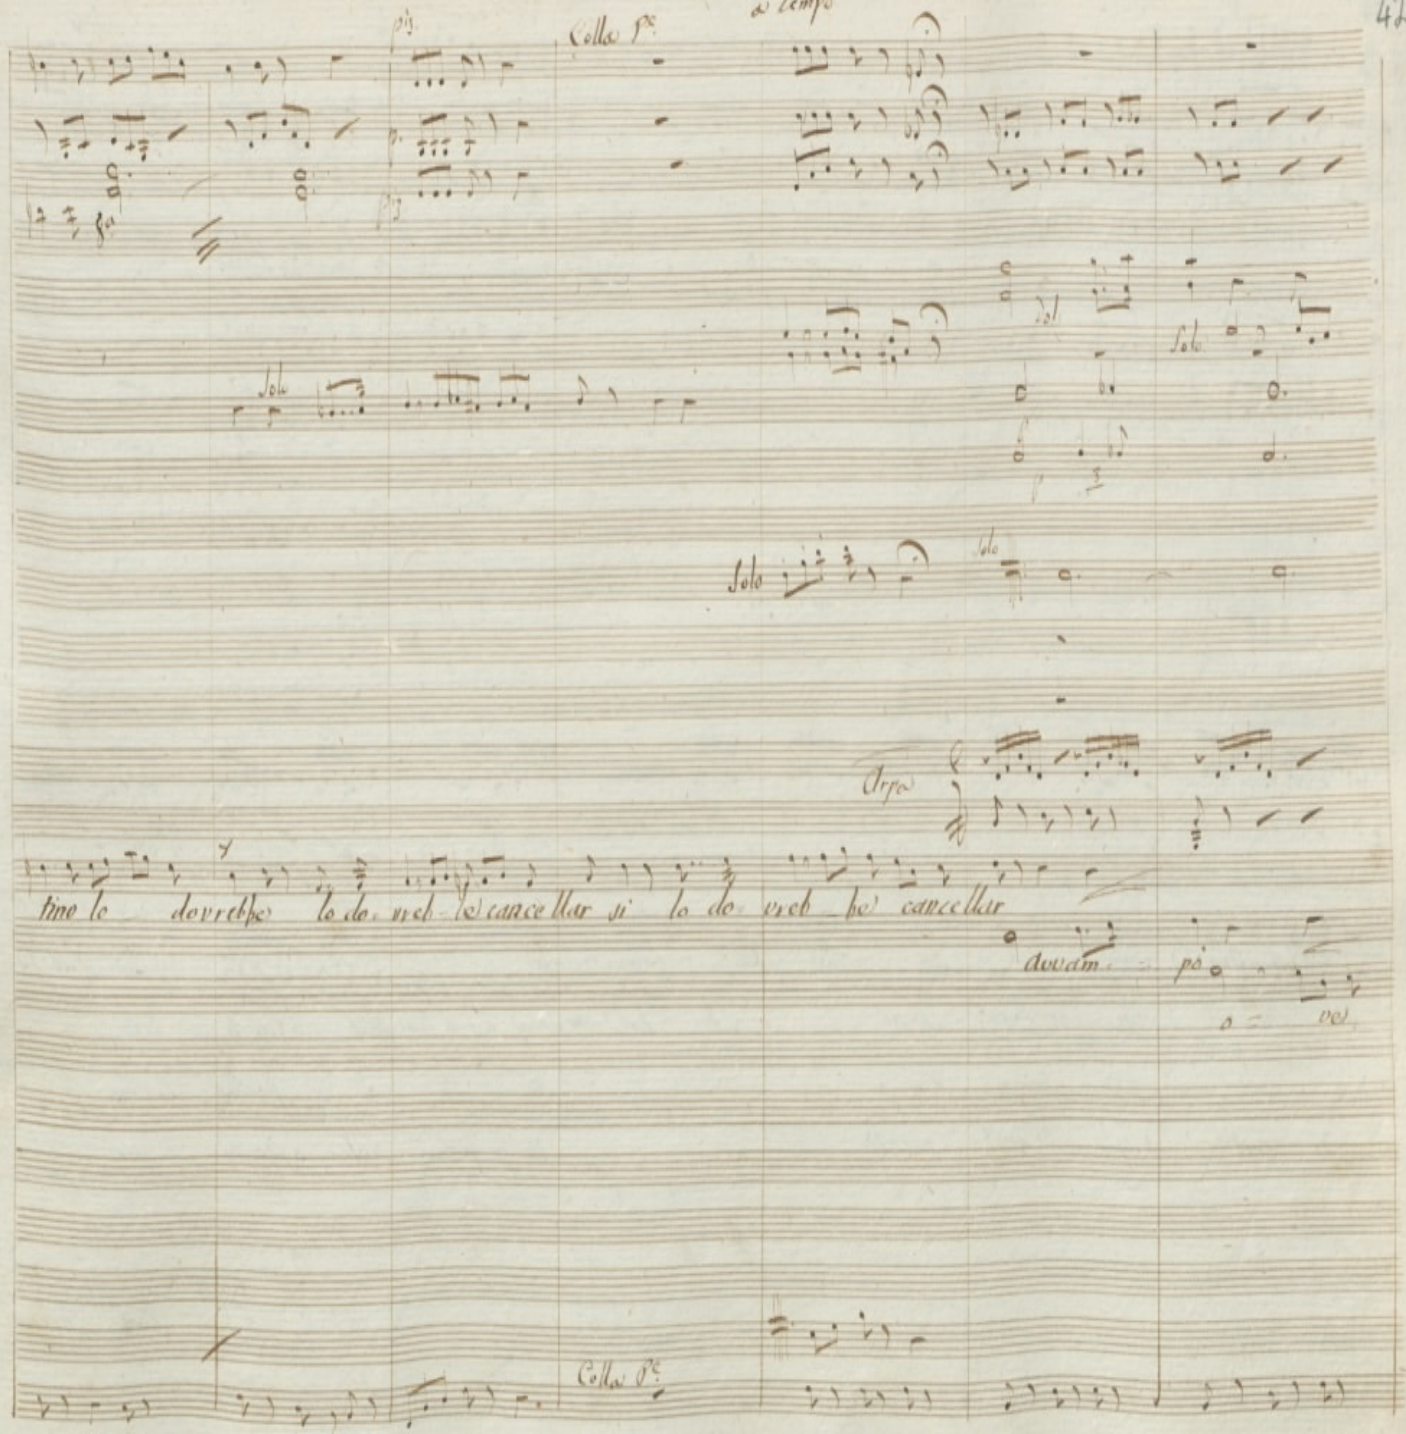 a tempo
piz. Colla Pe
42
p.
piz
Sol
Solo
Solo
p
Solo Solo
Arpa
tino lo dovrebbe lo do- vreb- be cancellar si lo do- vreb- be cancellar
avvam- pò
o = ve
Colla Pe